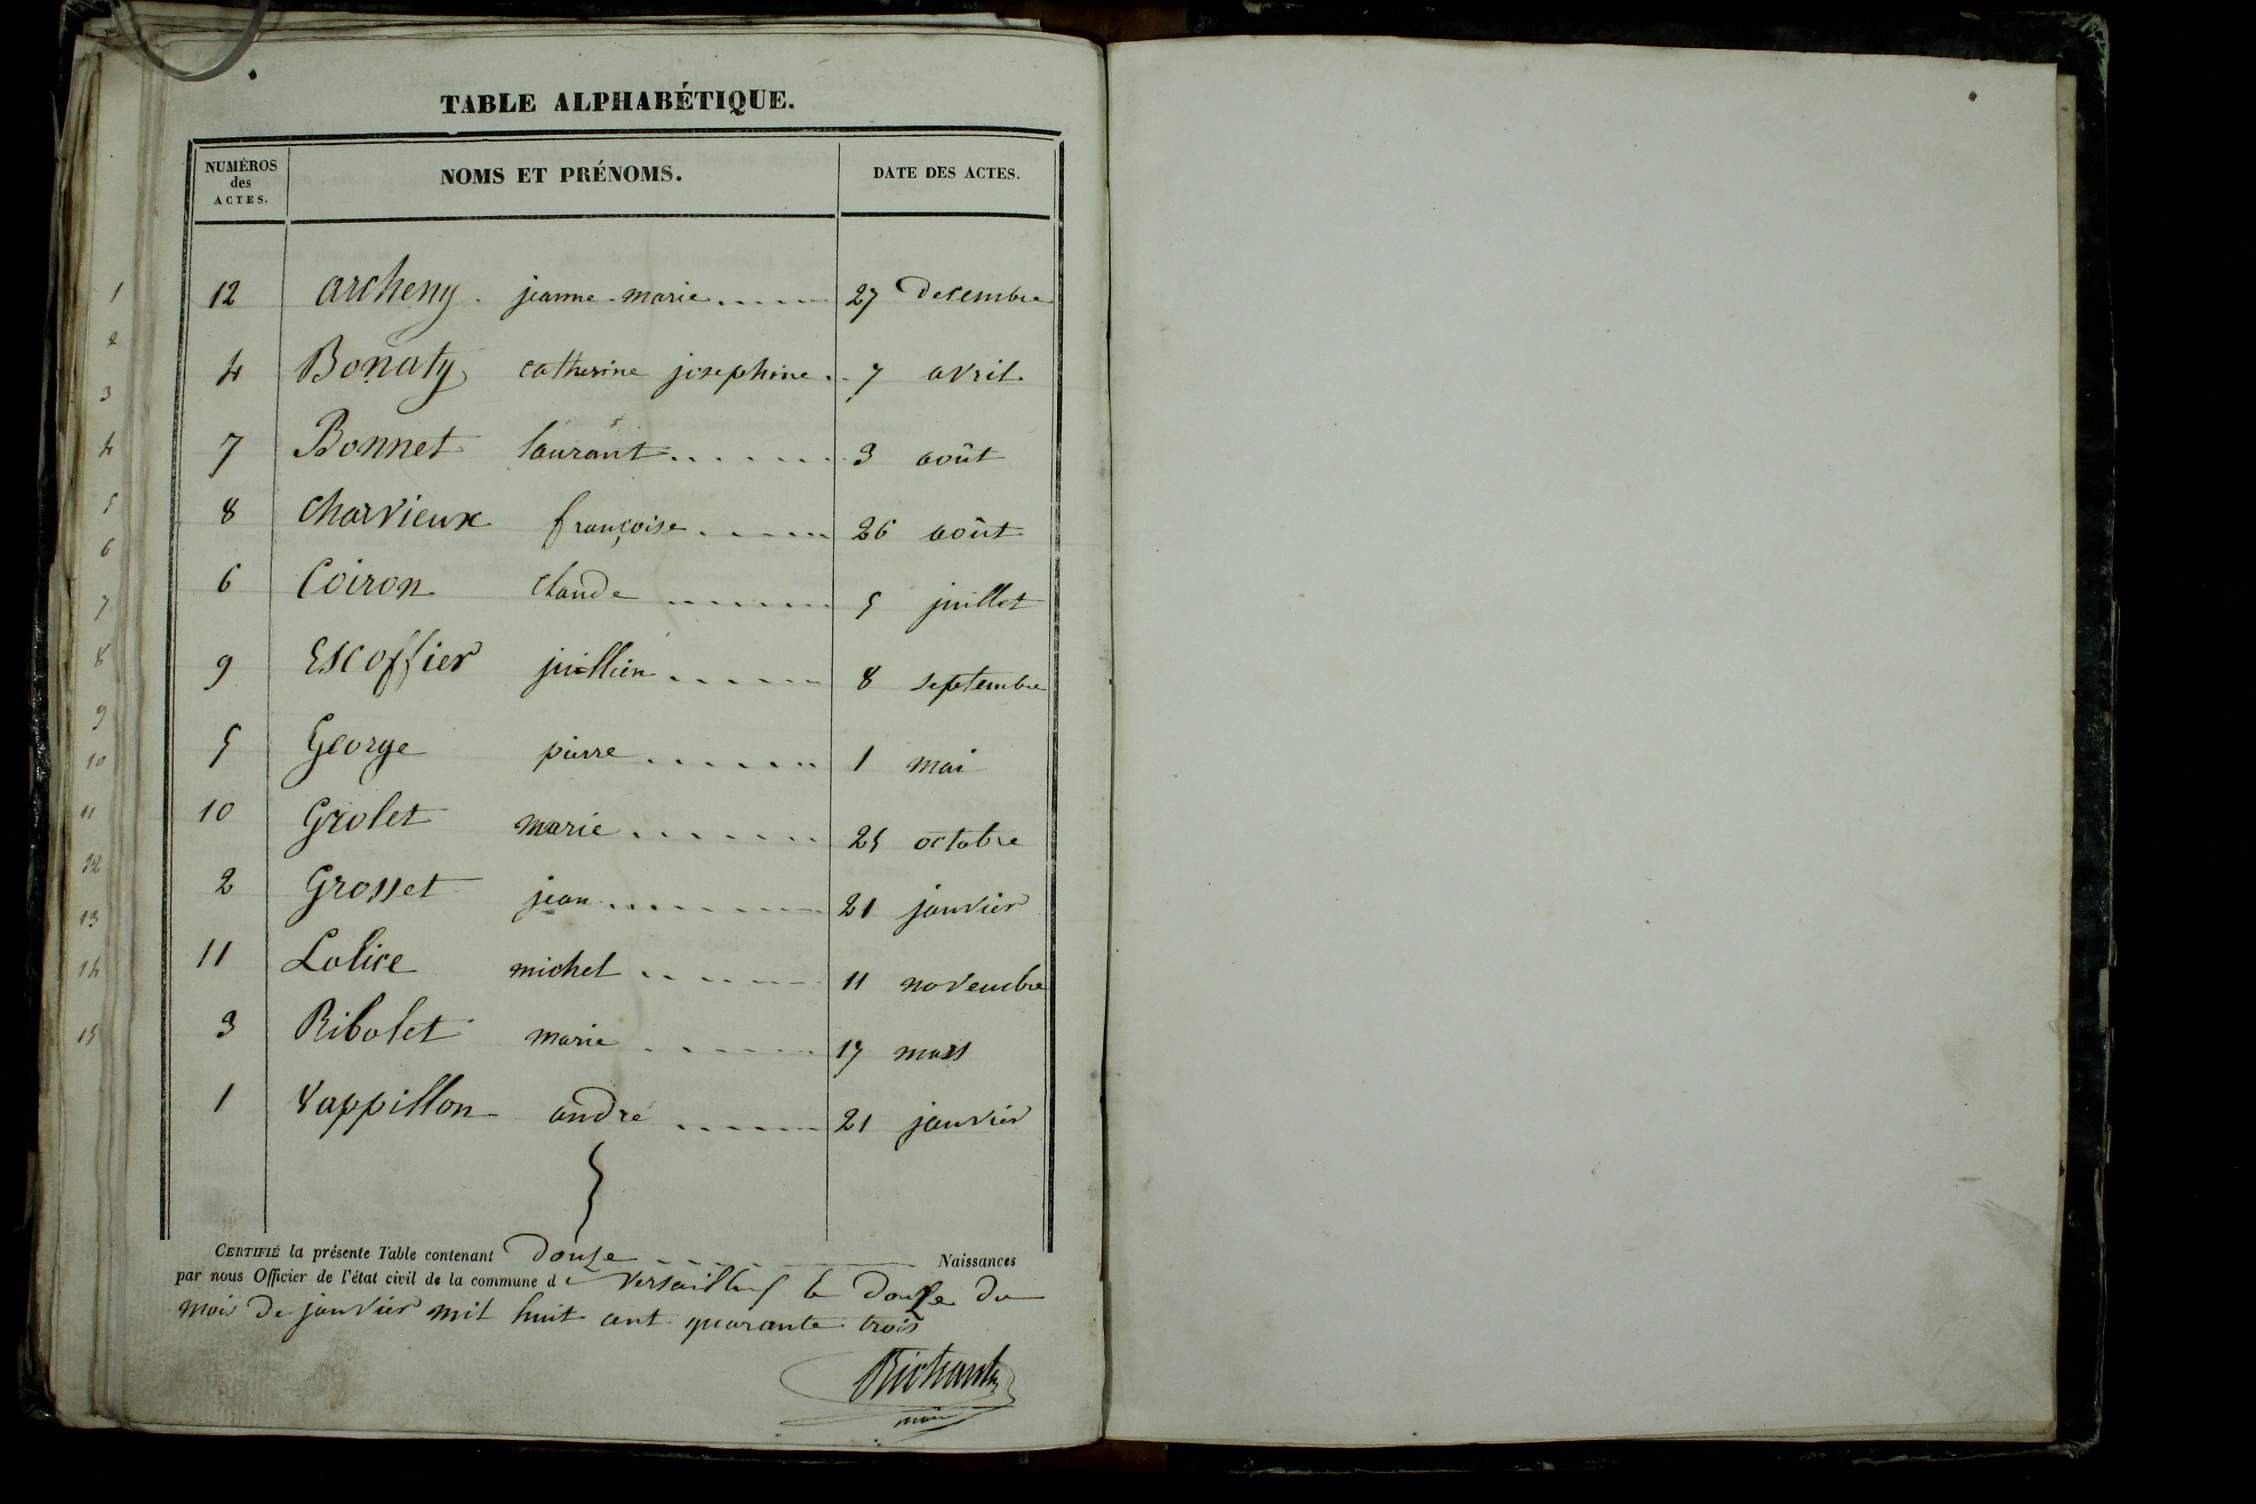 TABLE ALPHABÉTIQUE.
NUMÉROS des ACTES. NOMS ET PRÉNOMS. DATE DES ACTES.
12 archeny jeanne-marie 27 decembre
4 Bonaty catherine josephine 7 avril
7 Bonnet laurant 3 août
8 charvieux françoise 26 août
6 Coiron claude 5 juillet
9 Escoffier juillien 8 septembre
5 George pierre 1 mai
10 Grolet marie 25 octobre
2 Grosset jean 21 janvier
11 Lolice michel 11 novembre
3 Ribolet marie 17 mars
1 Vappillon andré 21 janvier
CERTIFIÉ la présente Table contenant douze Naissances
par nous Officier de l'état civil de la commune de versailleuf le douze du
mois de janvier mil huit cent quarante trois
maire
1
2
3
4
5
6
7
8
9
10
11
12
13
14
15